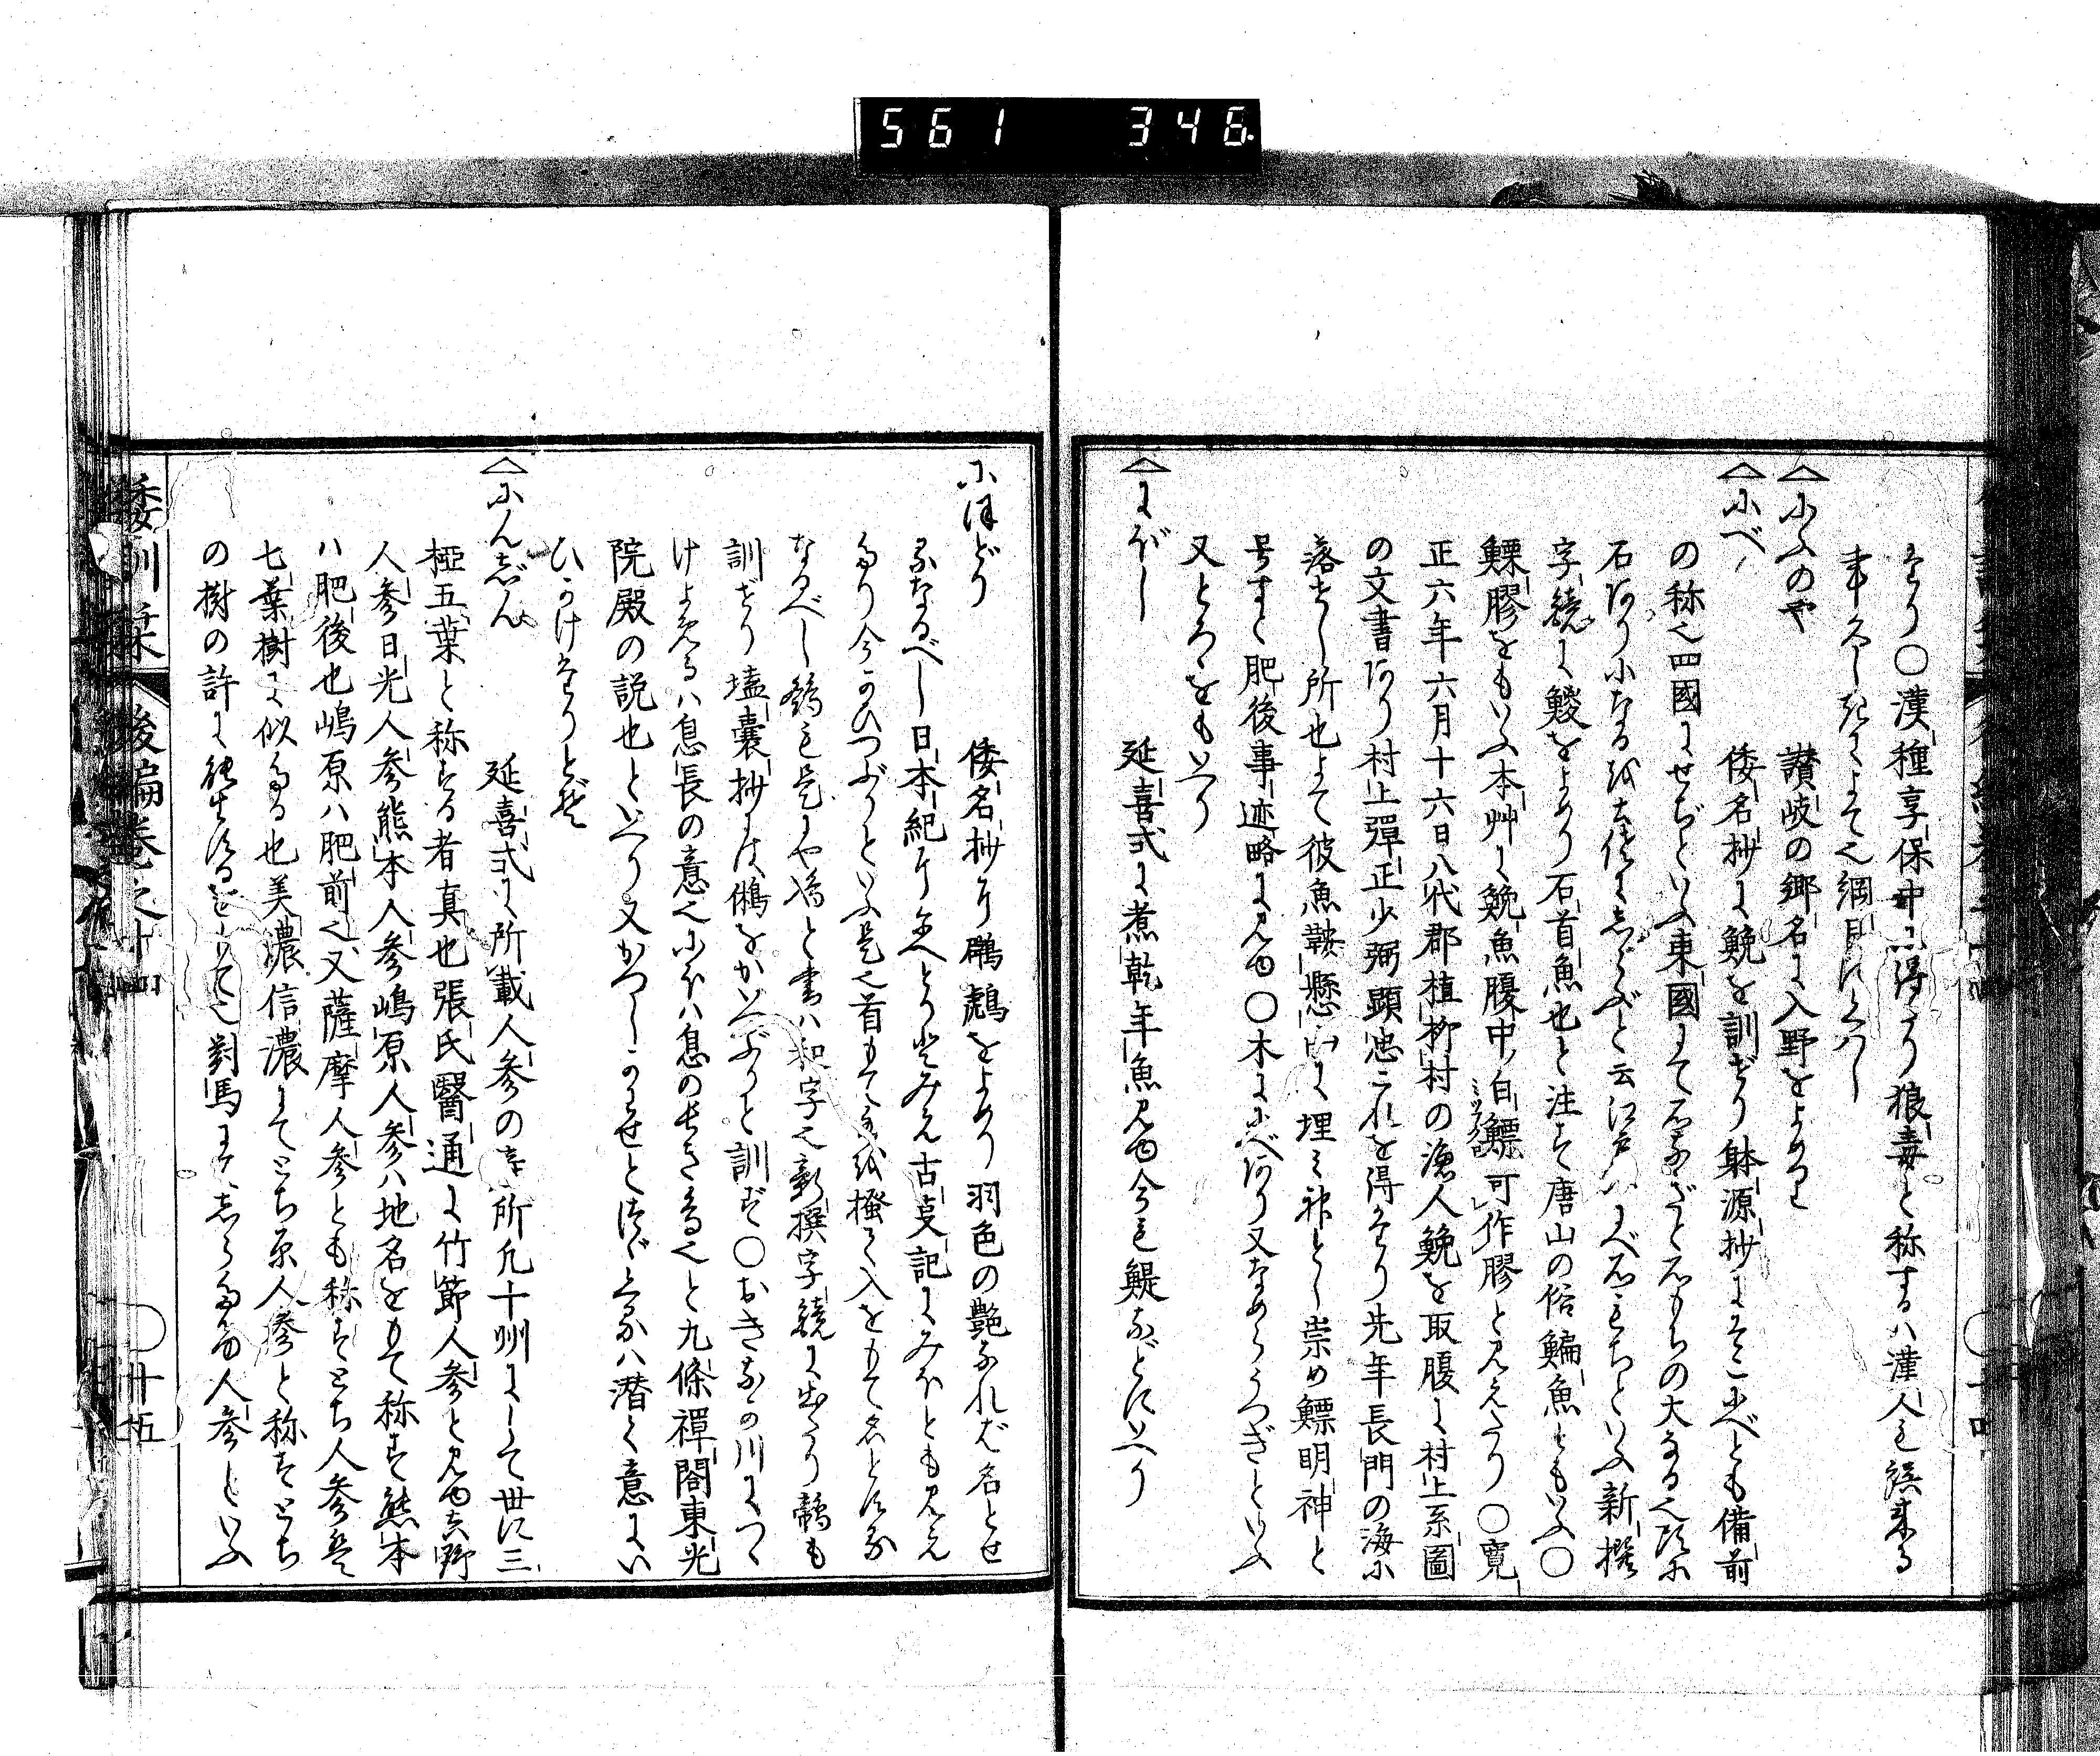 561 346
そり〇漢種享保中に得たり狼毒と称するハ漢人も誤来る
事久しきによて也綱目にくハし
△にふのや 讃岐の郷名に入野をよめり
△にべ 倭名抄に鮸を訓ぜり躰源抄にそこにべとも備前
の称也四國にせぢといふ東國にていしなぎといしもちの大なる也頭に
石あり小なるを
字鏡に鯼をよめり石首魚也と注す唐山の俗鯿魚ともいふ〇
鰾膠をもいふ本艸に鮸魚腹中白鰾可作膠と見えたり〇寛
正六年六月十六日八代郡植柳村の漁人鮸を取腹に村上系圖
の文書あり村上彈正少弼顕忠これを得たり先年長門の海に
落せし所也よて彼魚鞍懸山に埋ミ神とし崇め鰾明神と
号すと肥後事迹略に見ゆ〇木ににべあり又なめらうつぎといふ
又とろゝをもいへり
△にぼし 延喜式に煮乾年魚見ゆ今も鯷などにいへり
にほどり 倭名抄に鸊鷉をよめり羽色の艶なれば名とせ
るなるべし日本紀に
たり今かひつぶりといふ是也首もて水を掻て入をもて名とせる
なるべし鳰も是にや鳰と書ハ和字也新撰字鏡に出たり鶺も
訓ぜり壒嚢抄には鸍をかいつぶりと訓ず〇おきなが川につゞ
けよめるハ息長の意也にほハ息の長きもの也と九條禪閤東光
院殿の説也といへり又かつしかわせとつゞくるハ潜く意にい
ひかけたりとぞ
△にんじん 延喜式に所載人参の貢所凡十州にして丗に三
椏五葉と称する者真也張氏醫通に竹節人参と見ゆ吉野
人参日光人参熊本人参嶋原人参ハ地名をもて称す熊本
ハ肥後也嶋原ハ肥前也又薩摩人参とも称すとち人参ハ
七葉樹に似たる也美濃信濃にてとち原人参と称すとち
の樹の許に能生ずるをもて也對馬にてハしらたま人参といふ
倭訓栞 後編巻之十四 〇十五